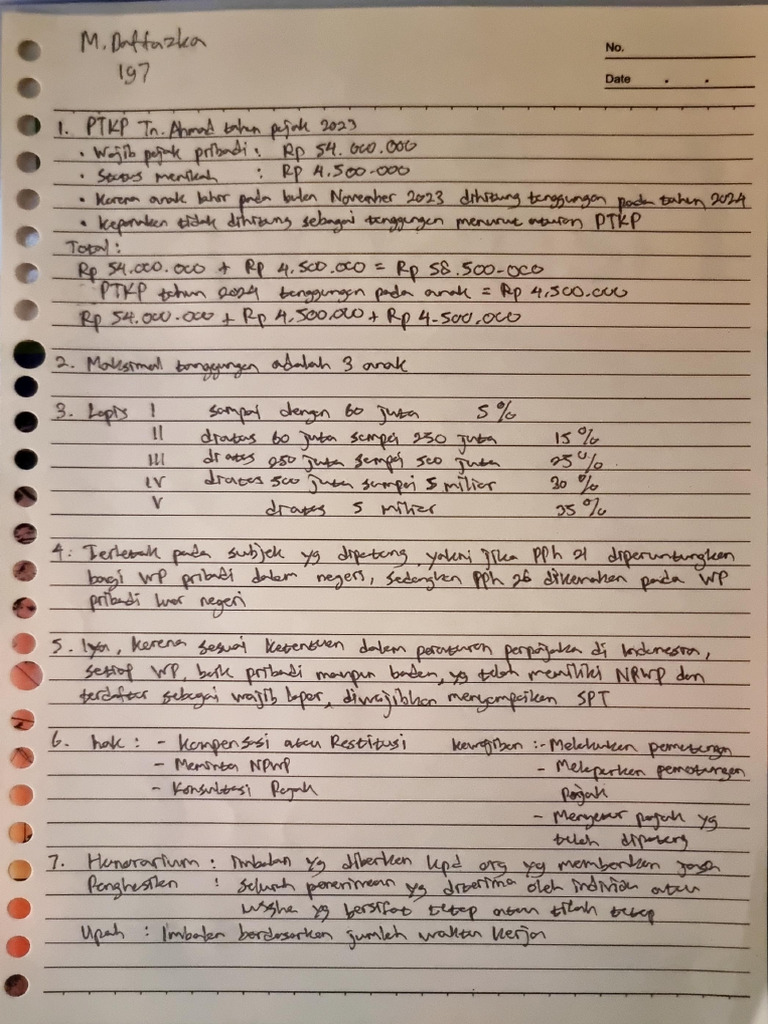 M. Daffazka
197
No.
Date . .
1. PTKP Tn. Ahmad tahun pajak 2023
• Wajib pajak pribadi : Rp 54.000.000
• Status menikah : Rp 4.500.000
• Karena anak lahir pada bulan November 2023 dihitung tanggungan pada tahun 2024
• Keponakan tidak dihitung sebagai tanggungan menurut aturan PTKP
Total :
Rp 54.000.000 + Rp 4.500.000 = Rp 58.500.000
PTKP tahun 2024 tanggungan pada anak = Rp 4.500.000
Rp 54.000.000 + Rp 4.500.000 + Rp 4.500.000
2. Maksimal tanggungan adalah 3 anak
3. Lapis I sampai dengan 60 juta 5%
II diatas 60 juta sampai 250 juta 15%
III diatas 250 juta sampai 500 juta 25%
IV diatas 500 juta sampai 5 miliar 30%
V diatas 5 miliar 35%
4. Terletak pada subjek yg dipotong, yakni jika PPh 21 diperuntungkan
bagi WP pribadi dalam negeri, sedangkan PPh 26 dikenakan pada WP
pribadi luar negeri
5. Iya, karena sesuai ketentuan dalam peraturan perpajaka di Indonesia,
setiap WP, baik pribadi maupun badan, yg telah memiliki NPWP dan
terdaftar sebagai wajib lapor, diwajibkan menyampaikan SPT
6. hak : - Kompensasi atau Restitusi kewajiban : - Melakukan pemotongan
- Meminta NPWP - Melaporkan pemotongan
- Konsultasi Pajak pajak
- Menyetor pajak yg
telah dipotong
7. Honorarium : imbalan yg diberikan kpd org yg memberikan jasa
Penghasilan : seluruh penerimaan yg diterima oleh individu atau
usaha yg bersifat tetap atau tidak tetap
Upah : Imbalan berdasarkan jumlah waktu kerja